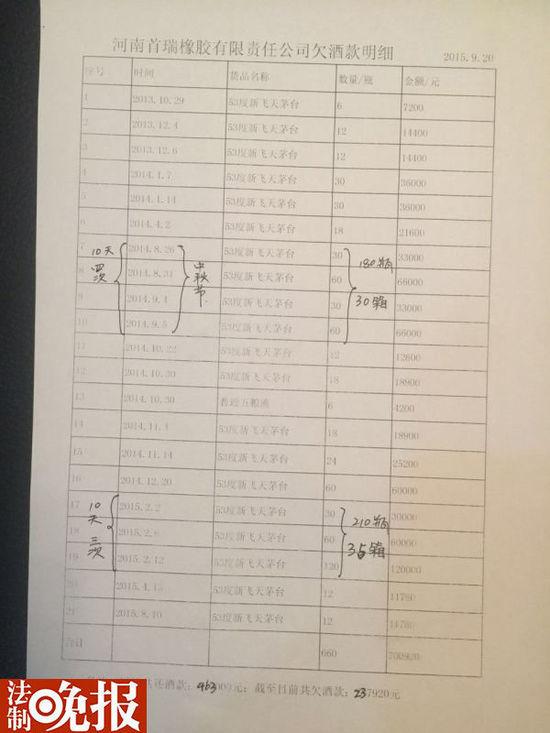 河南首瑞橡胶有限责任公司欠酒款明细 2015.9.20
序号 时间 货品名称 数量/瓶 金额/元
1 2013.10.29 53度新飞天茅台 6 7200
2 2013.12.4 53度新飞天茅台 12 14400
3 2013.12.6 53度新飞天茅台 12 14400
4 2014.1.7 53度新飞天茅台 30 36000
5 2014.1.14 53度新飞天茅台 30 36000
6 2014.4.2 53度新飞天茅台 18 21600
7 2014.8.26 53度新飞天茅台 30 33000
8 2014.8.31 53度新飞天茅台 60 66000
9 2014.9.4 53度新飞天茅台 30 33000
10 2014.9.5 53度新飞天茅台 60 66000
10天四次
中秋节
180瓶
30箱
11 2014.10.22 53度新飞天茅台 12 12600
12 2014.10.30 53度新飞天茅台 18 18900
13 2014.10.30 普通五粮液 6 4200
14 53度新飞天茅台 18 18900
15 2014.11.14 53度新飞天茅台 24 25200
16 2014.12.20 53度新飞天茅台 60 60000
17 2015.2.2 53度新飞天茅台 30 30000
18 2015.2.6 53度新飞天茅台 60 60000
19 2015.2.12 53度新飞天茅台 120 120000
10天三次
210瓶
35箱
20 53度新飞天茅台 12 11760
21 2015.8.10 53度新飞天茅台 12 11760
合计 660 700920
共还酒款：463000元；截至目前共欠酒款：237920元
法制晚报